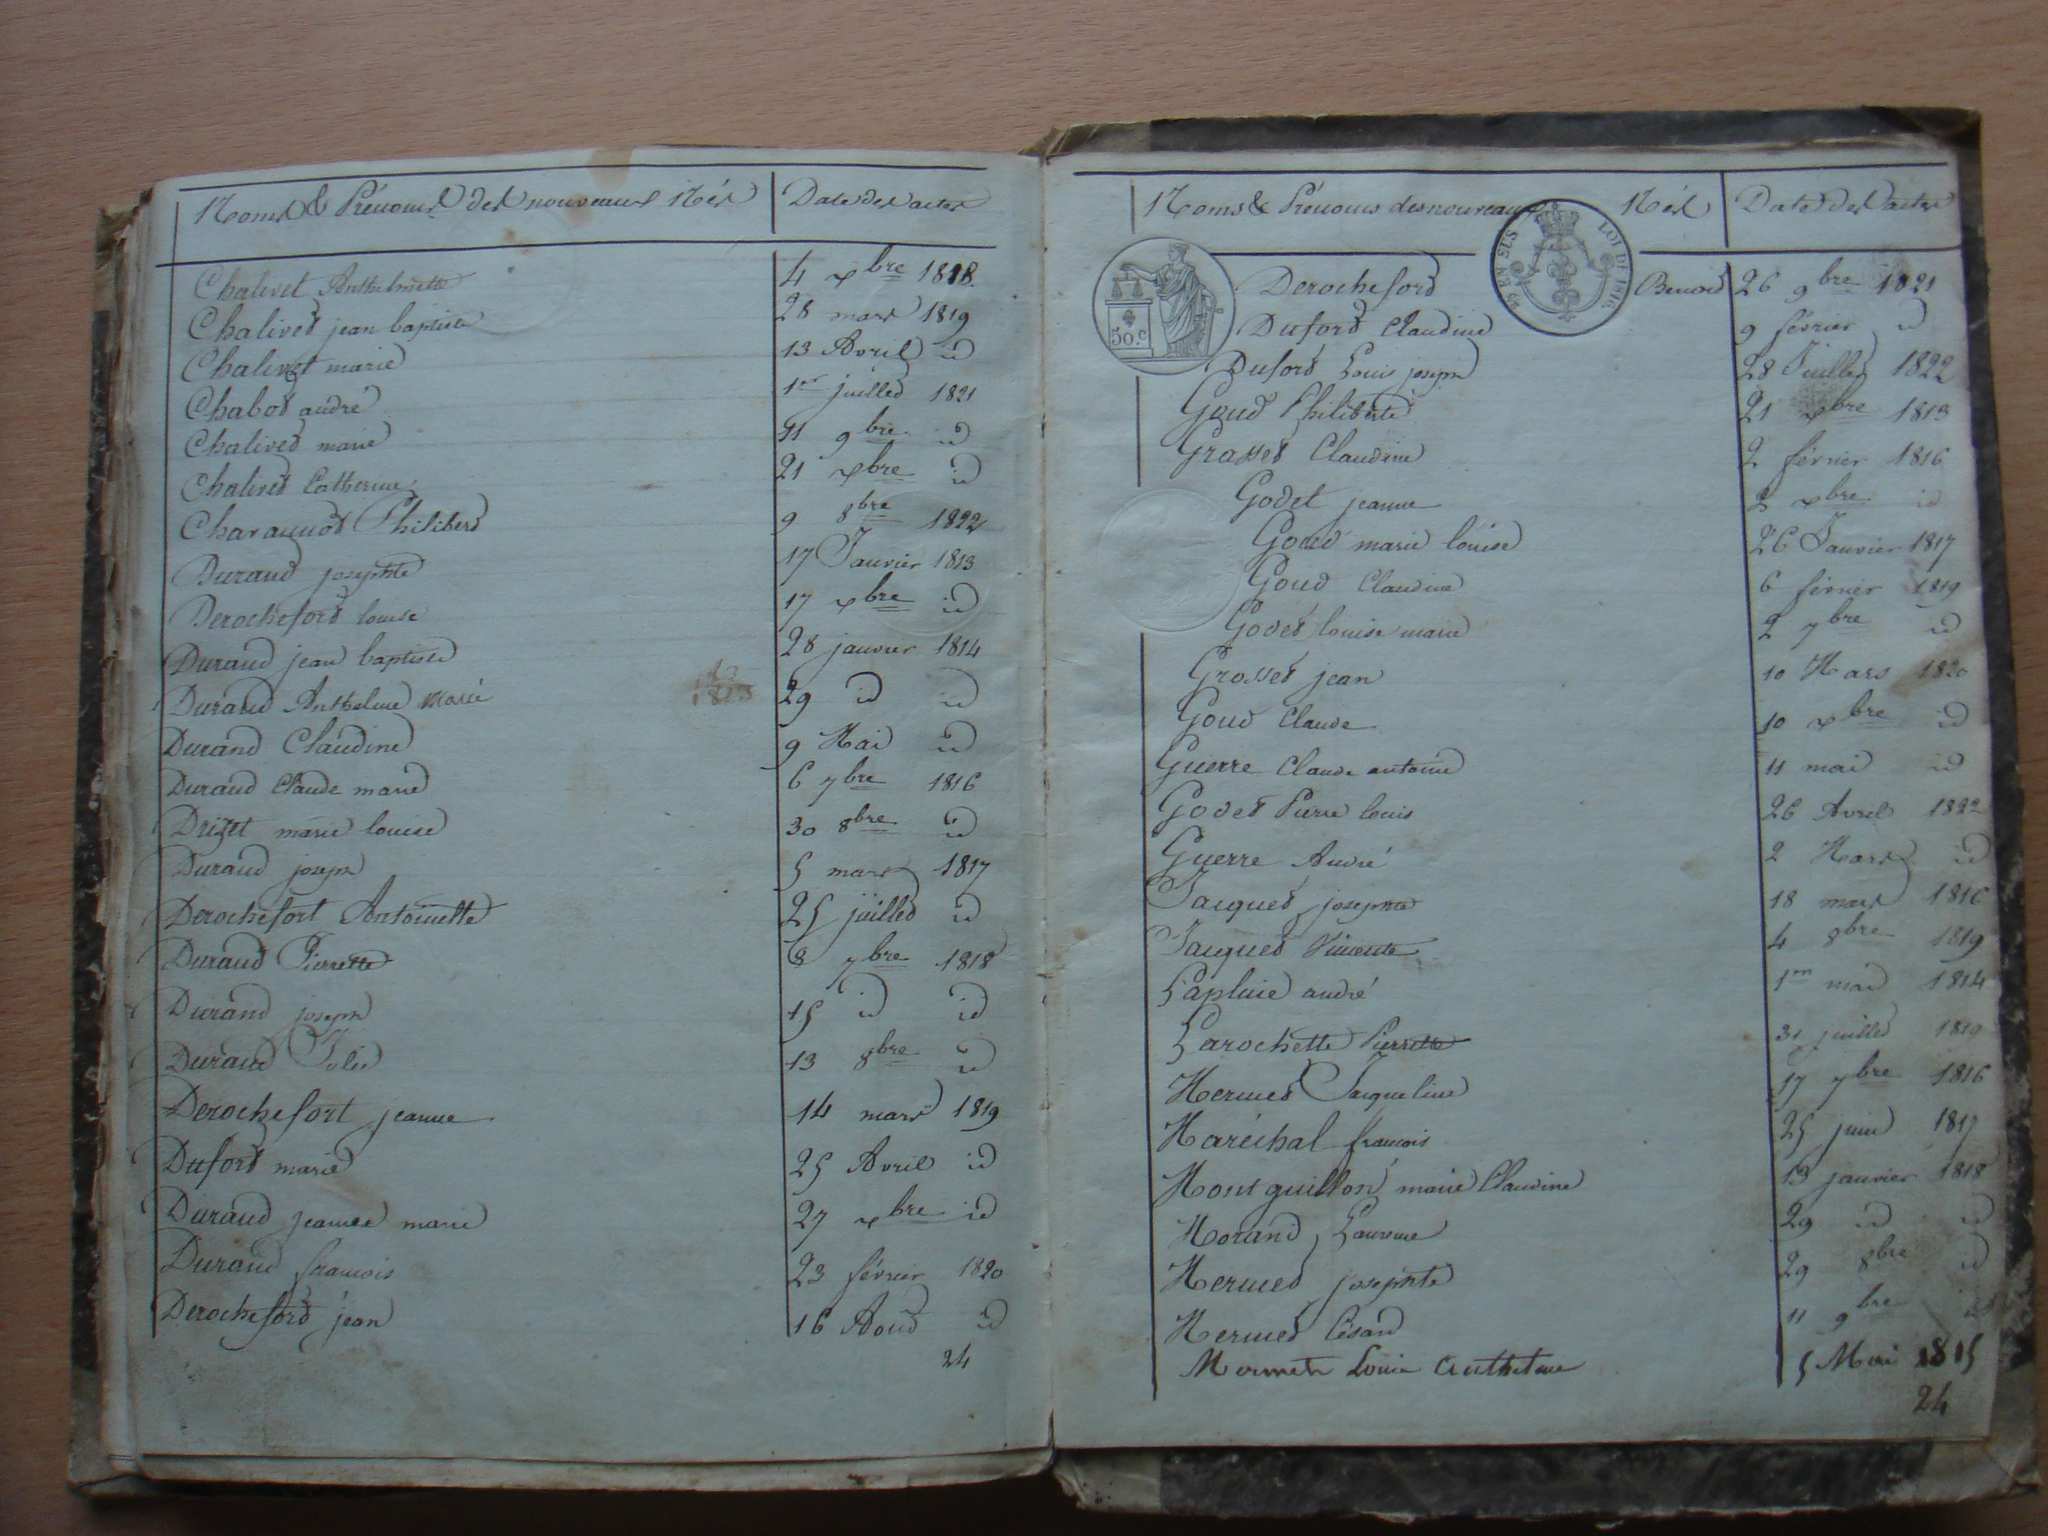 Noms & Prénoms des nouveaux Nés Date des actes
Chalivet Anthelmette 4 xbre 1818
Chalivet jean baptiste 28 mars 1819
Chalivet marie 13 Avril id
Chabot andré 1er juillet 1821
Chalivet marie 11 9bre id
Chalivet Catherine 21 xbre id
Charaunot Philibert 9 8bre 1822
Durand josephte 17 Janvier 1813
Derochefort louise 17 xbre id
Durand jean baptiste 28 janvier 1814
Durand Anthelme Marie 29 id id
Durand Claudine 9 Mai id
Durand Claude marie 6 7bre 1816
Drizet marie louise 30 8bre id
Durand joseph 5 mars 1817
Derochefort Antoinette 25 juillet id
Durand Pierrette 8 7bre 1818
Durand joseph 15 id id
Durand Julie 13 8bre id
Derochefort jeanne 14 mars 1819
Dufort marie 25 Avril id
Durand jeanne marie 27 xbre id
Durand francois 23 février 1820
Derochefort jean 16 Aout id
24
Noms & Prénoms des nouveaux Nés Date des actes
EN SES LOI DE 1816
50.c
Derochefort Benoit 26 9bre 1821
Dufort Claudine 9 février id
Dufort Louis joseph 28 Juillet 1822
Goud Philiberte 21 xbre 1813
Grosset Claudine 2 février 1816
Godet jeanne 2 xbre id
Goud marie louise 26 Janvier 1817
Goud Claudine 6 février 1819
Godet louise marie 2 7bre id
Grosset jean 10 Mars 1820
Goud Claude 10 xbre id
Guerre Claude antoine 11 mai id
Godet Pierre louis 26 Avril 1822
Guerre André 2 Mars id
Jacquet josephte 18 mars 1816
Jacquet Vincente 4 8bre 1819
Lapluie andré 1er mai 1814
Larochette Pierrette 31 juillet 1819
Mermet Jacqueline 17 7bre 1816
Maréchal francois 25 juin 1817
Montguillon marie Claudine 13 janvier 1818
Morand Laurence 29 id id
Mermet josephte 29 8bre id
Mermet Césard 11 9bre id
Mermet Louis Anthelme 5 Mai 1815
24